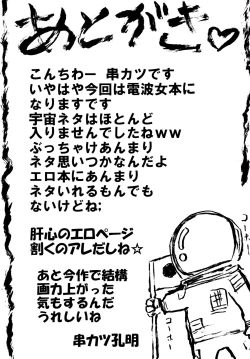 あとがき♡
こんちわー 串カツです
いやはや今回は電波女本に
なりますです
宇宙ネタはほとんど
入りませんでしたねｗｗ
ぶっちゃけあんまり
ネタ思いつかなんだよ
エロ本にあんまり
ネタいれるもんでも
ないけどね;
肝心のエロページ
割くのアレだしね☆
あと今作で結構
画力上がった
気もするんだ
うれしいね
串カツ孔明
コーホー
コーホー